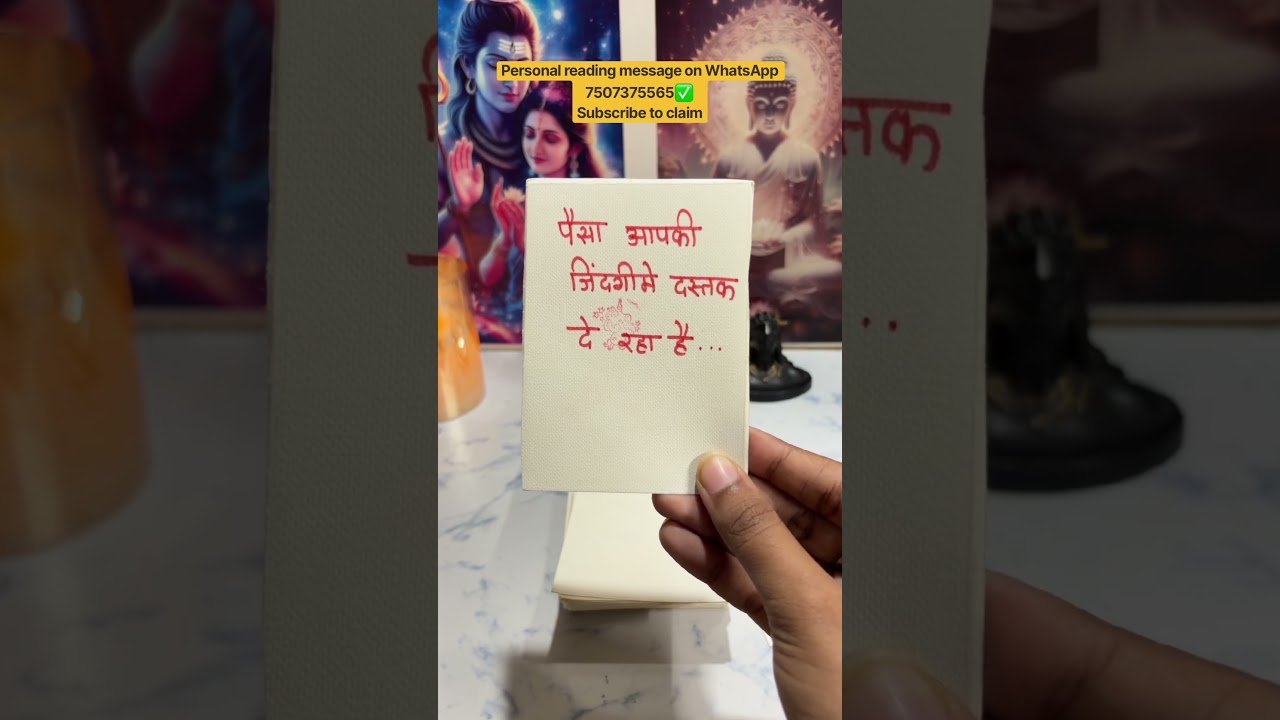 Personal reading message on WhatsApp
7507375565✅
Subscribe to claim
पैसा आपकी
जिंदगीमे दस्तक
दे रहा है...